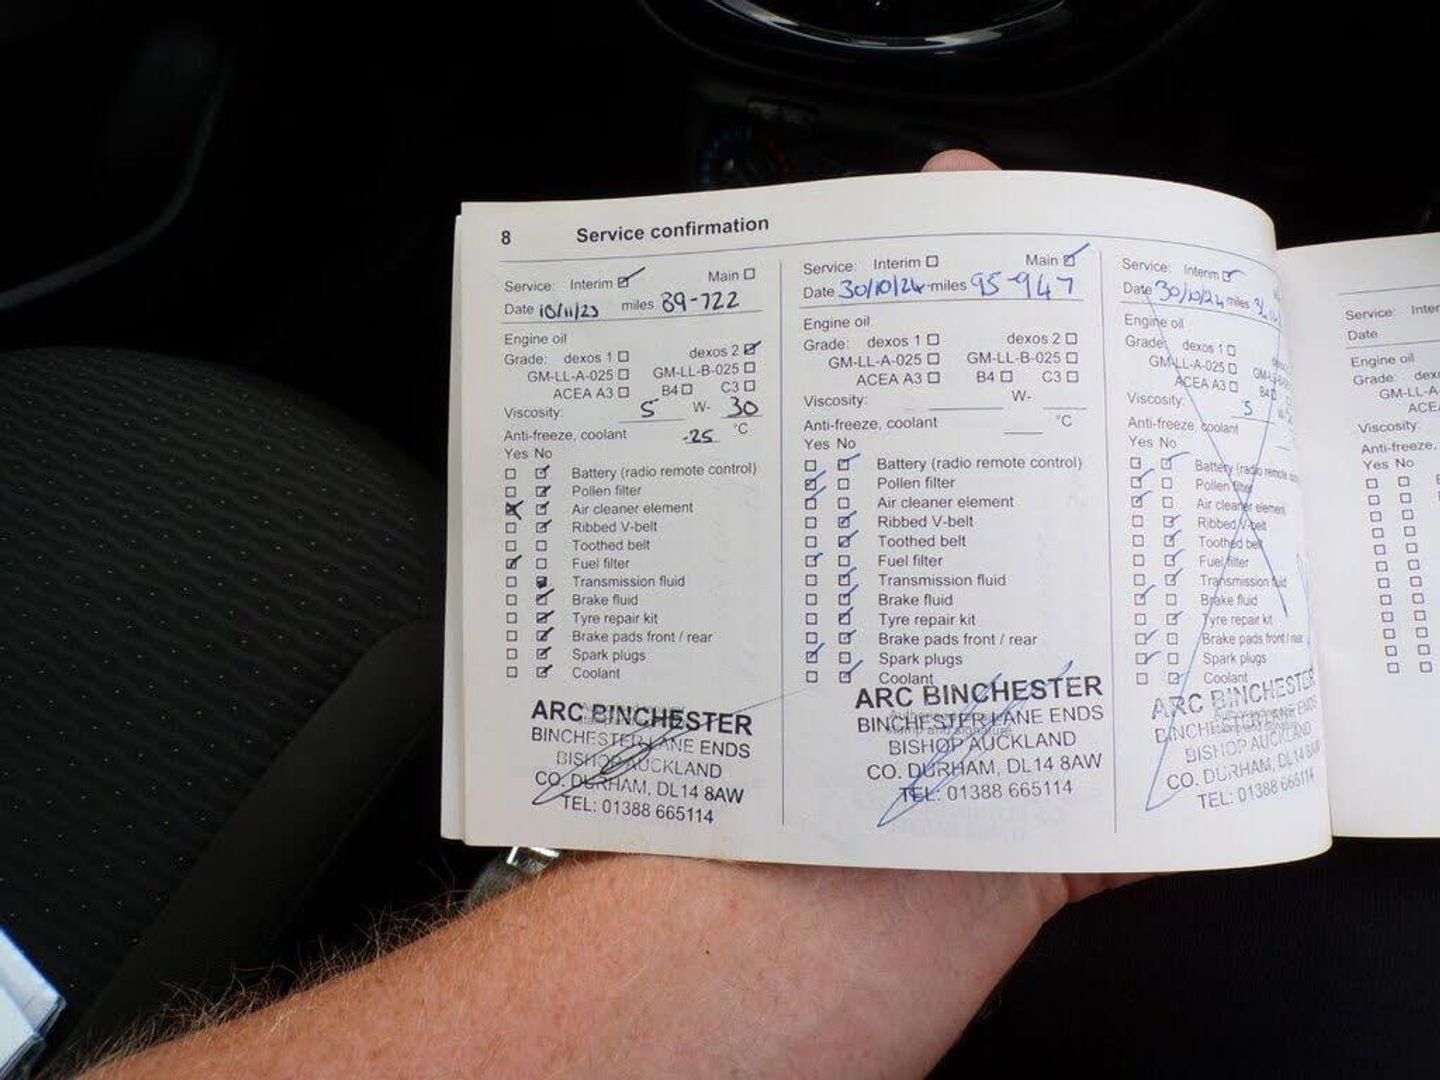 8 Service confirmation
Service: Interim Main
Date 18/11/23 miles 89-722
Engine oil
Grade: dexos 1 dexos 2
GM-LL-A-025 GM-LL-B-025
ACEA A3 B4 C3
Viscosity: 5 W- 30
Anti-freeze, coolant -25 °C
Yes No
Battery (radio remote control)
Pollen filter
Air cleaner element
Ribbed V-belt
Toothed belt
Fuel filter
Transmission fluid
Brake fluid
Tyre repair kit
Brake pads front / rear
Spark plugs
Coolant
ARC BINCHESTER
BINCHESTER LANE ENDS
BISHOP AUCKLAND
CO. DURHAM, DL14 8AW
TEL: 01388 665114
Service: Interim Main
Date 30/10/24 miles 95-947
Engine oil
Grade: dexos 1 dexos 2
GM-LL-A-025 GM-LL-B-025
ACEA A3 B4 C3
Viscosity: W-
Anti-freeze, coolant °C
Yes No
Battery (radio remote control)
Pollen filter
Air cleaner element
Ribbed V-belt
Toothed belt
Fuel filter
Transmission fluid
Brake fluid
Tyre repair kit
Brake pads front / rear
Spark plugs
Coolant
ARC BINCHESTER
BINCHESTER LANE ENDS
BISHOP AUCKLAND
CO. DURHAM, DL14 8AW
TEL: 01388 665114
Service: Interim
Date 30/10/24 miles
Engine oil
Grade: dexos 1
GM-LL-A-025
ACEA A3 B4
Viscosity: 5
Anti-freeze, coolant
Yes No
Battery (radio remote
Pollen filter
Air cleaner element
Ribbed V-belt
Toothed belt
Fuel filter
Transmission fluid
Brake fluid
Tyre repair kit
Brake pads front / rear
Spark plugs
Coolant
ARC BINCHESTER
BINCHESTER LANE ENDS
BISHOP AUCKLAND
CO. DURHAM, DL14 8AW
TEL: 01388 665114
Service:
Date
Engine oil
Grade:
GM-LL-A
Viscosity:
Anti-freeze,
Yes No